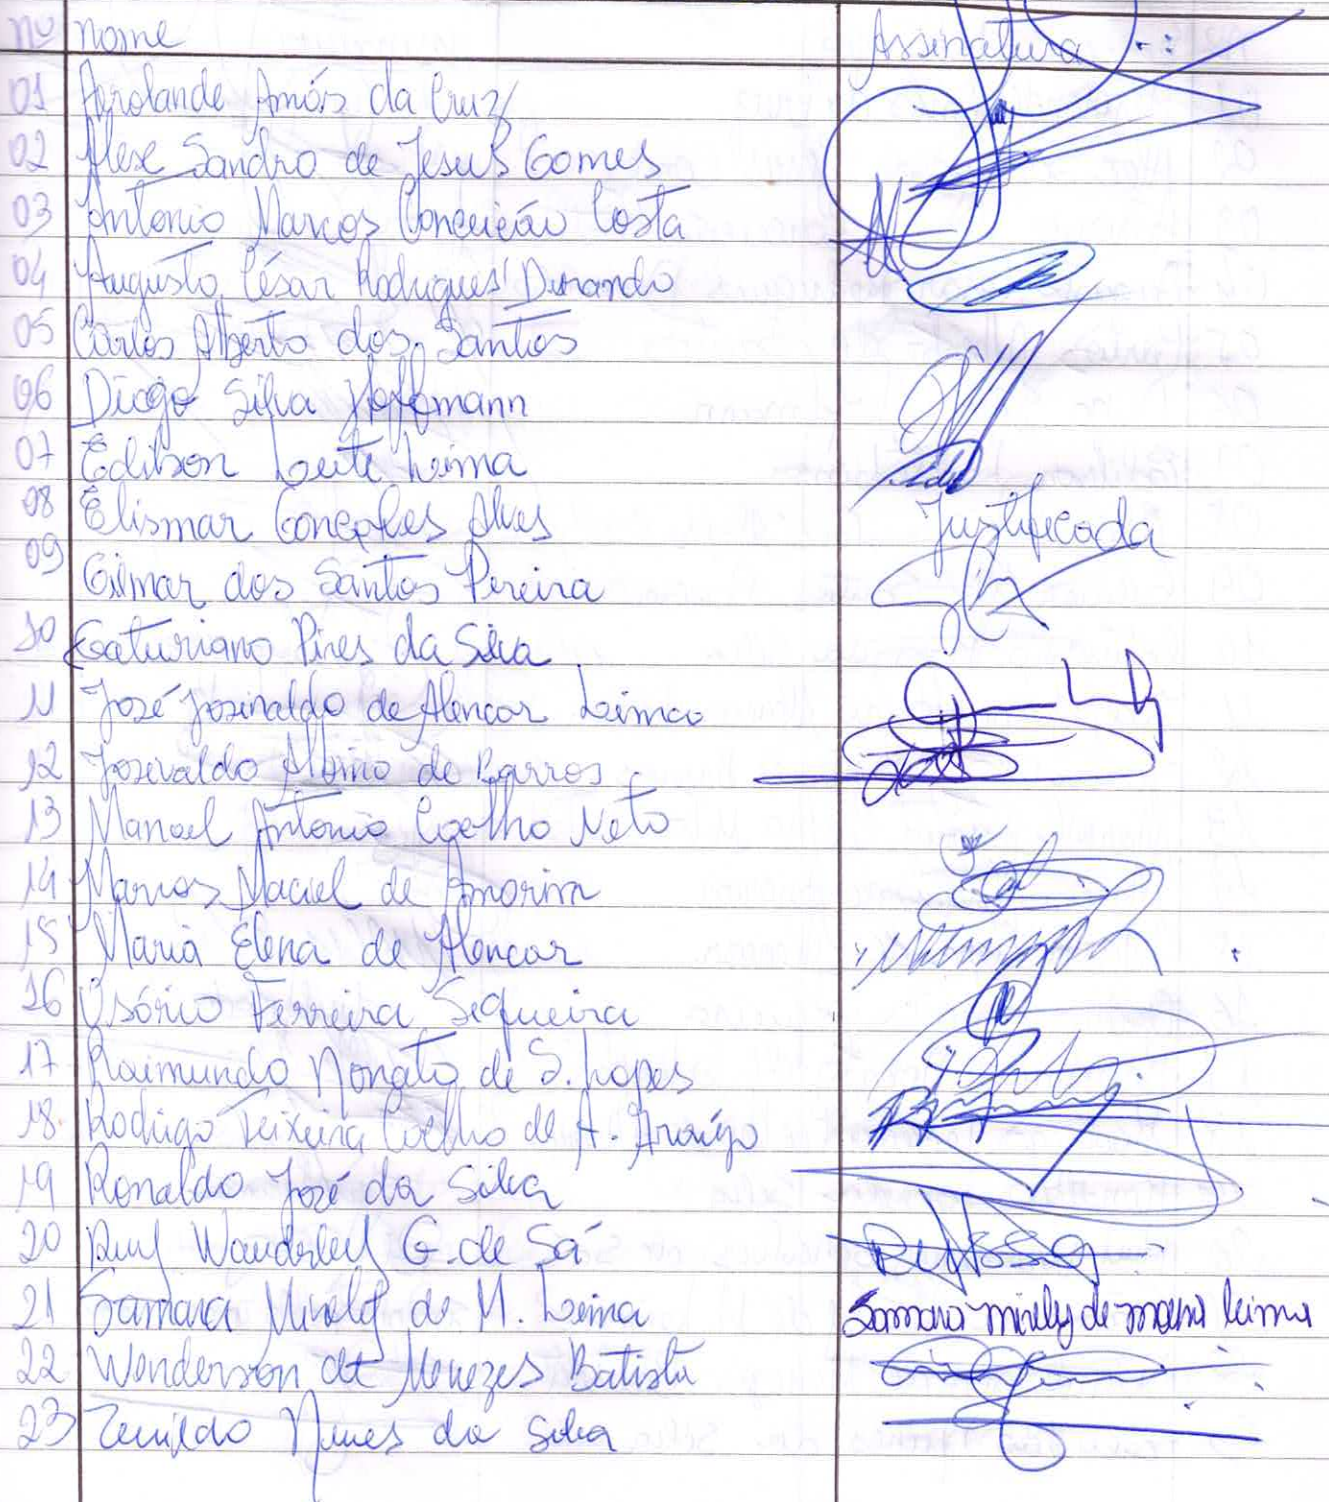 Nº Nome Assinatura
01 Arolande Amós da Cruz
02 Alex Sandro de Jesus Gomes
03 Antonio Marcos Conceição Costa
04 Augusto César Rodrigues Durando
05 Carlos Alberto dos Santos
06 Diogo Silva Hoffmann
07 Edilson Leite Lima
08 Elismar Gonçalves Alves Justificada
09 Gilmar dos Santos Pereira
10 Gaturiano Pires da Silva
11 José Josinaldo de Alencar
12 Josivaldo de Barros
13 Manoel Antonio Coelho Neto
14 Marcos Maciel de Amorim
15 Maria Elena de Alencar
16 Osório Ferreira Siqueira
17 Raimundo Nonato de S. Lopes
18 Rodrigo Teixeira Coelho de A. Araújo
19 Ronaldo José da Silva
20 Ruy Wanderley G. de Sá
21 Samara Mirely de M. Lima Samara Mirely de moura lima
22 Wenderson de Menezes Batista
23 Zenildo Nunes da Silva